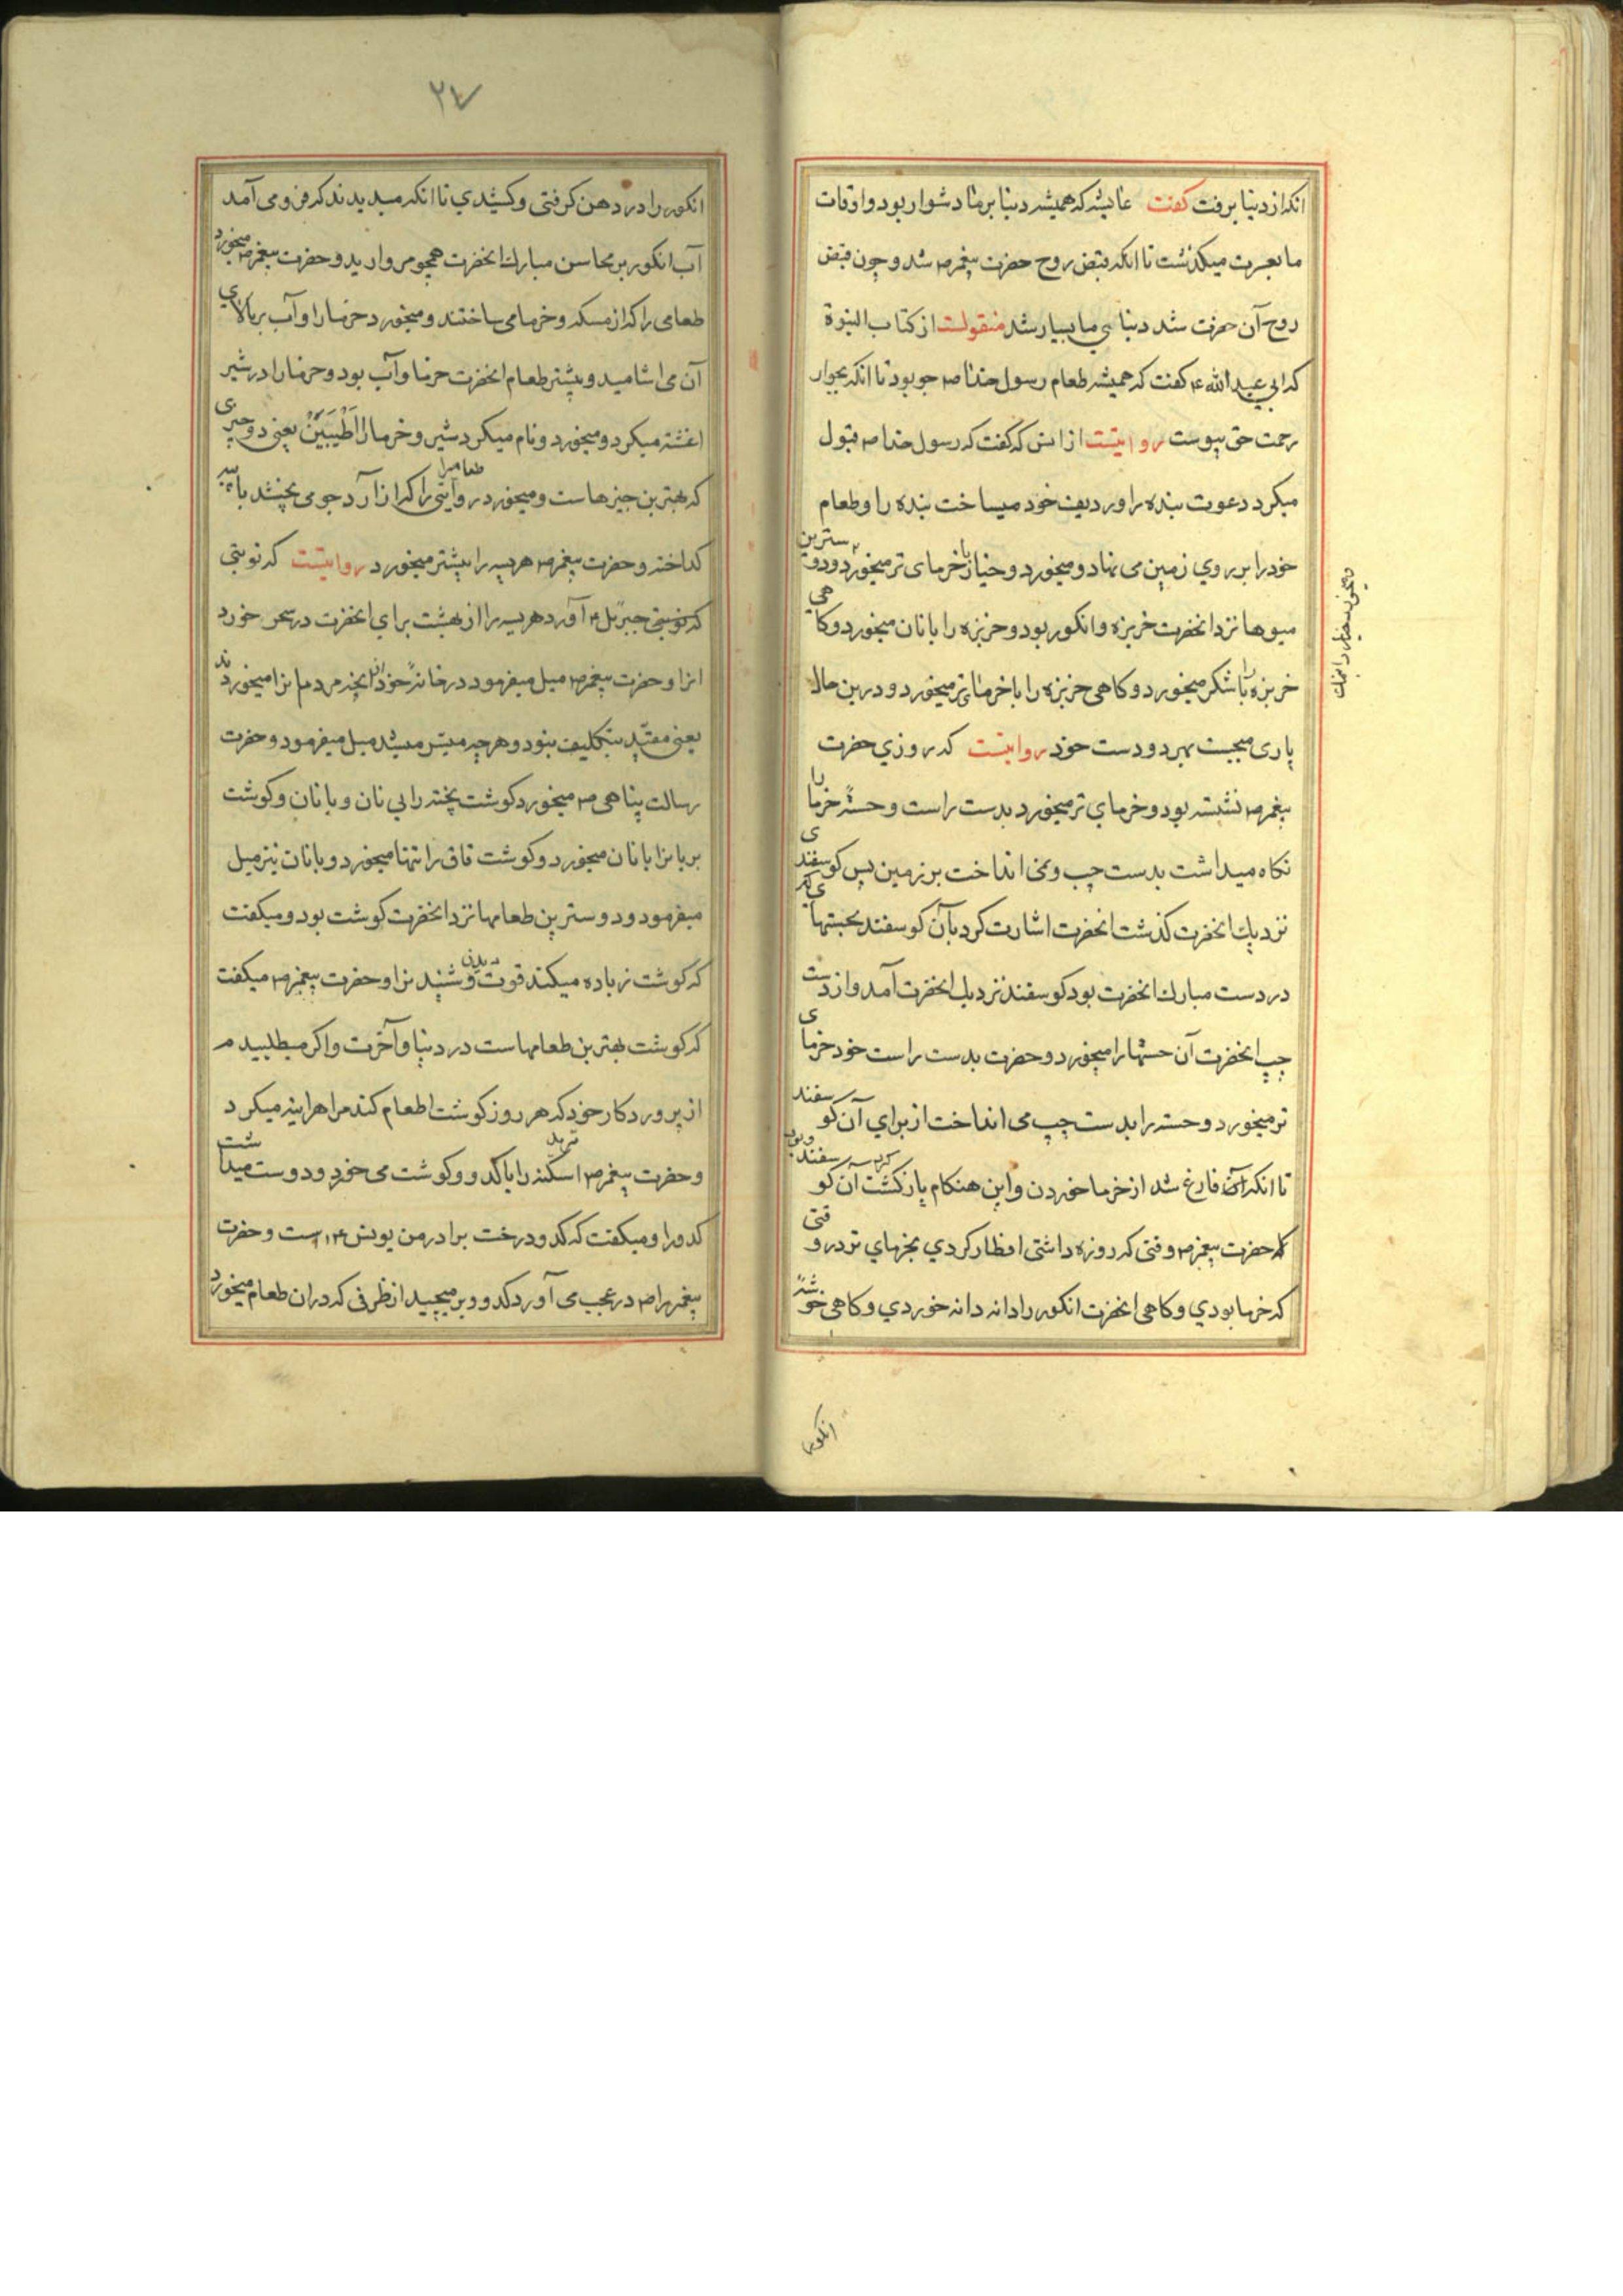 انکه از دنیا برفت کفت عایشه که همیشه دنیا بر ما دشوار بود و اوقات
ما بعسرت میکذشت تا انکه قبض روح حضرت پیغمبر ص شد و چون قبض
روح آن حضرت شد دنیای ما بسیار شد منقولست از کتاب النبوة
که ابی عبد الله ع کفت که همیشه طعام رسول خدا ص جو بود تا انکه بجوار
رحمت حق پیوست روایتست از انس که کفت که رسول خدا ص قبول
میکرد دعوت بنده را و ردیف خود میساخت بنده را و طعام
خود را بر روی زمین می نهاد و میخورد و خیار با خرمای تر میخورد و دوسترین
میوها نزد انحضرت خربزه و انکور بود و خربزه را با نان میخورد و کاهی
خربزه را با شکر میخورد و کاهی خربزه را با خرمای تر میخورد و درین حال
یاری میجست بهر دو دست خود روایتست که روزی حضرت
پیغمبر ص نشسته بود و خرمای تر میخورد بدست راست و خستهٔ خرما را
نکاه میداشت بدست چپ و نمی انداخت بر زمین پس کوسفندی
نزدیک انحضرت کذشت انحضرت اشارت کرد بآن کوسفند بخستهایی که
در دست مبارک انحضرت بود کوسفند نزدیک انحضرت آمد و از دست
چپ انحضرت آن خستها را میخورد و حضرت بدست راست خود خرمای
تر میخورد و خسته را بدست چپ می انداخت از برای آن کوسفند
تا انکه فارغ شد از خرما خوردن و این هنکام بازکشت آن کوسفند
حضرت پیغمبر ص وقتی که روزه داشتی افطار کردی بخرمای تر در وقتی
که خرما بودی و کاهی انحضرت انکور را دانه دانه خوردی و کاهی خوشهٔ
انکور
۲۷
انکور را در دهن کرفتی و کشیدی تا انکه میدیدند که فرو می آمد
آب انکور بر محاسن مبارک انحضرت همچو مروارید و حضرت پیغمبر ص میخورد
طعامی را که از مسکه و خرما می ساختند و میخورد خرما را و آب بر بالای
آن می اشامید و بیشتر طعام انحضرت خرما و آب بود و خرما را در شیر
اغشته میکرد و میخورد و نام میکرد شیر و خرما را اَطْیَبَیْنْ یعنی دو چیزی
که بهترین چیزهاست و میخورد در وایتی طعامی را که از آرد جو می پختند با پیه
کداخته و حضرت پیغمبر ص هریسه را بیشتر میخورد روایتست که نوبتی
که نوبتی جبرئل ع آورد هریسه را از بهشت برای انحضرت در سحر خورد
انرا و حضرت پیغمبر ص میل میفرمود در خانهٔ خود از انچه مردمان میخوردند
یعنی مقیّد بتکلیف نبود و هر چه میسّر میشد میل میفرمود و حضرت
رسالت پناهی ص میخورد کوشت پخته را بی نان و با نان و کوشت
بریانرا با نان میخورد و کوشت قاق را تنها میخورد و با نان نیز میل
میفرمود و دوسترین طعامها نزد انحضرت کوشت بود و میکفت
که کوشت زیاده میکند قوت شنیدن و دیدن را و حضرت پیغمبر ص میکفت
که کوشت بهترین طعامهاست در دنیا و آخرت و اکر میطلبیدم
از پروردکار خود که هر روز کوشت اطعام کند مرا هراینه میکرد
و حضرت پیغمبر ص اسکنه را با کدو و کوشت می خورد و دوست میداشت
کدو را و میکفت که کدو درخت برادر من یونس ع است و حضرت
پیغمبر را ص در عجب می آورد کدو و بر میچید از ظرفی که در ان طعام میخورد